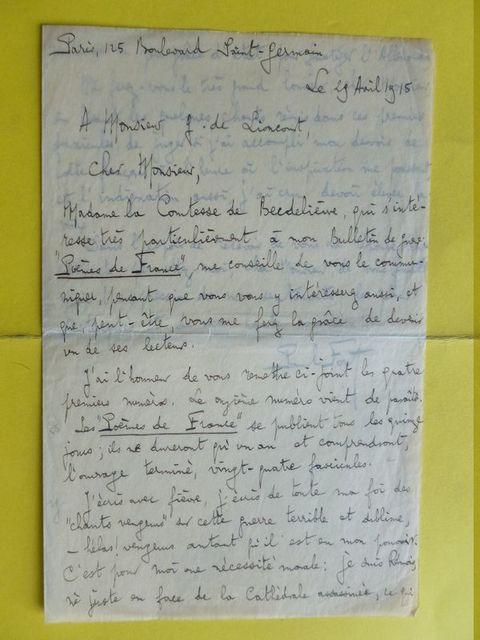 Paris, 125 Boulevard Saint-Germain
Le 29 Avril 1915
A Monsieur J. de Lioncourt,
Cher Monsieur,
Madame la Comtesse de Becdelièvre, qui s'inté-
resse très particulièrement à mon Bulletin de guerre:
"Poèmes de France", me conseille de vous le commu-
niquer, pensant que vous vous y intéresserez aussi, et
que, peut-être, vous me ferez la grâce de devenir
un de ses lecteurs.
J'ai l'honneur de vous remettre ci-joint les quatre
premiers numéros. Le onzième numéro vient de paraître.
Les "Poèmes de France" se publient tous les quinze
jours; ils ne dureront qu'un an et comprendront,
l'ouvrage terminé, vingt-quatre fascicules.
J'écris avec fièvre, j'écris de toute ma foi des
"chants vengeurs" sur cette guerre terrible et sublime,
- hélas! vengeurs autant qu'il est en mon pouvoir.
C'est pour moi une nécessité morale: Je suis Rémois,
né juste en face de la Cathédrale assassinée, ce qui